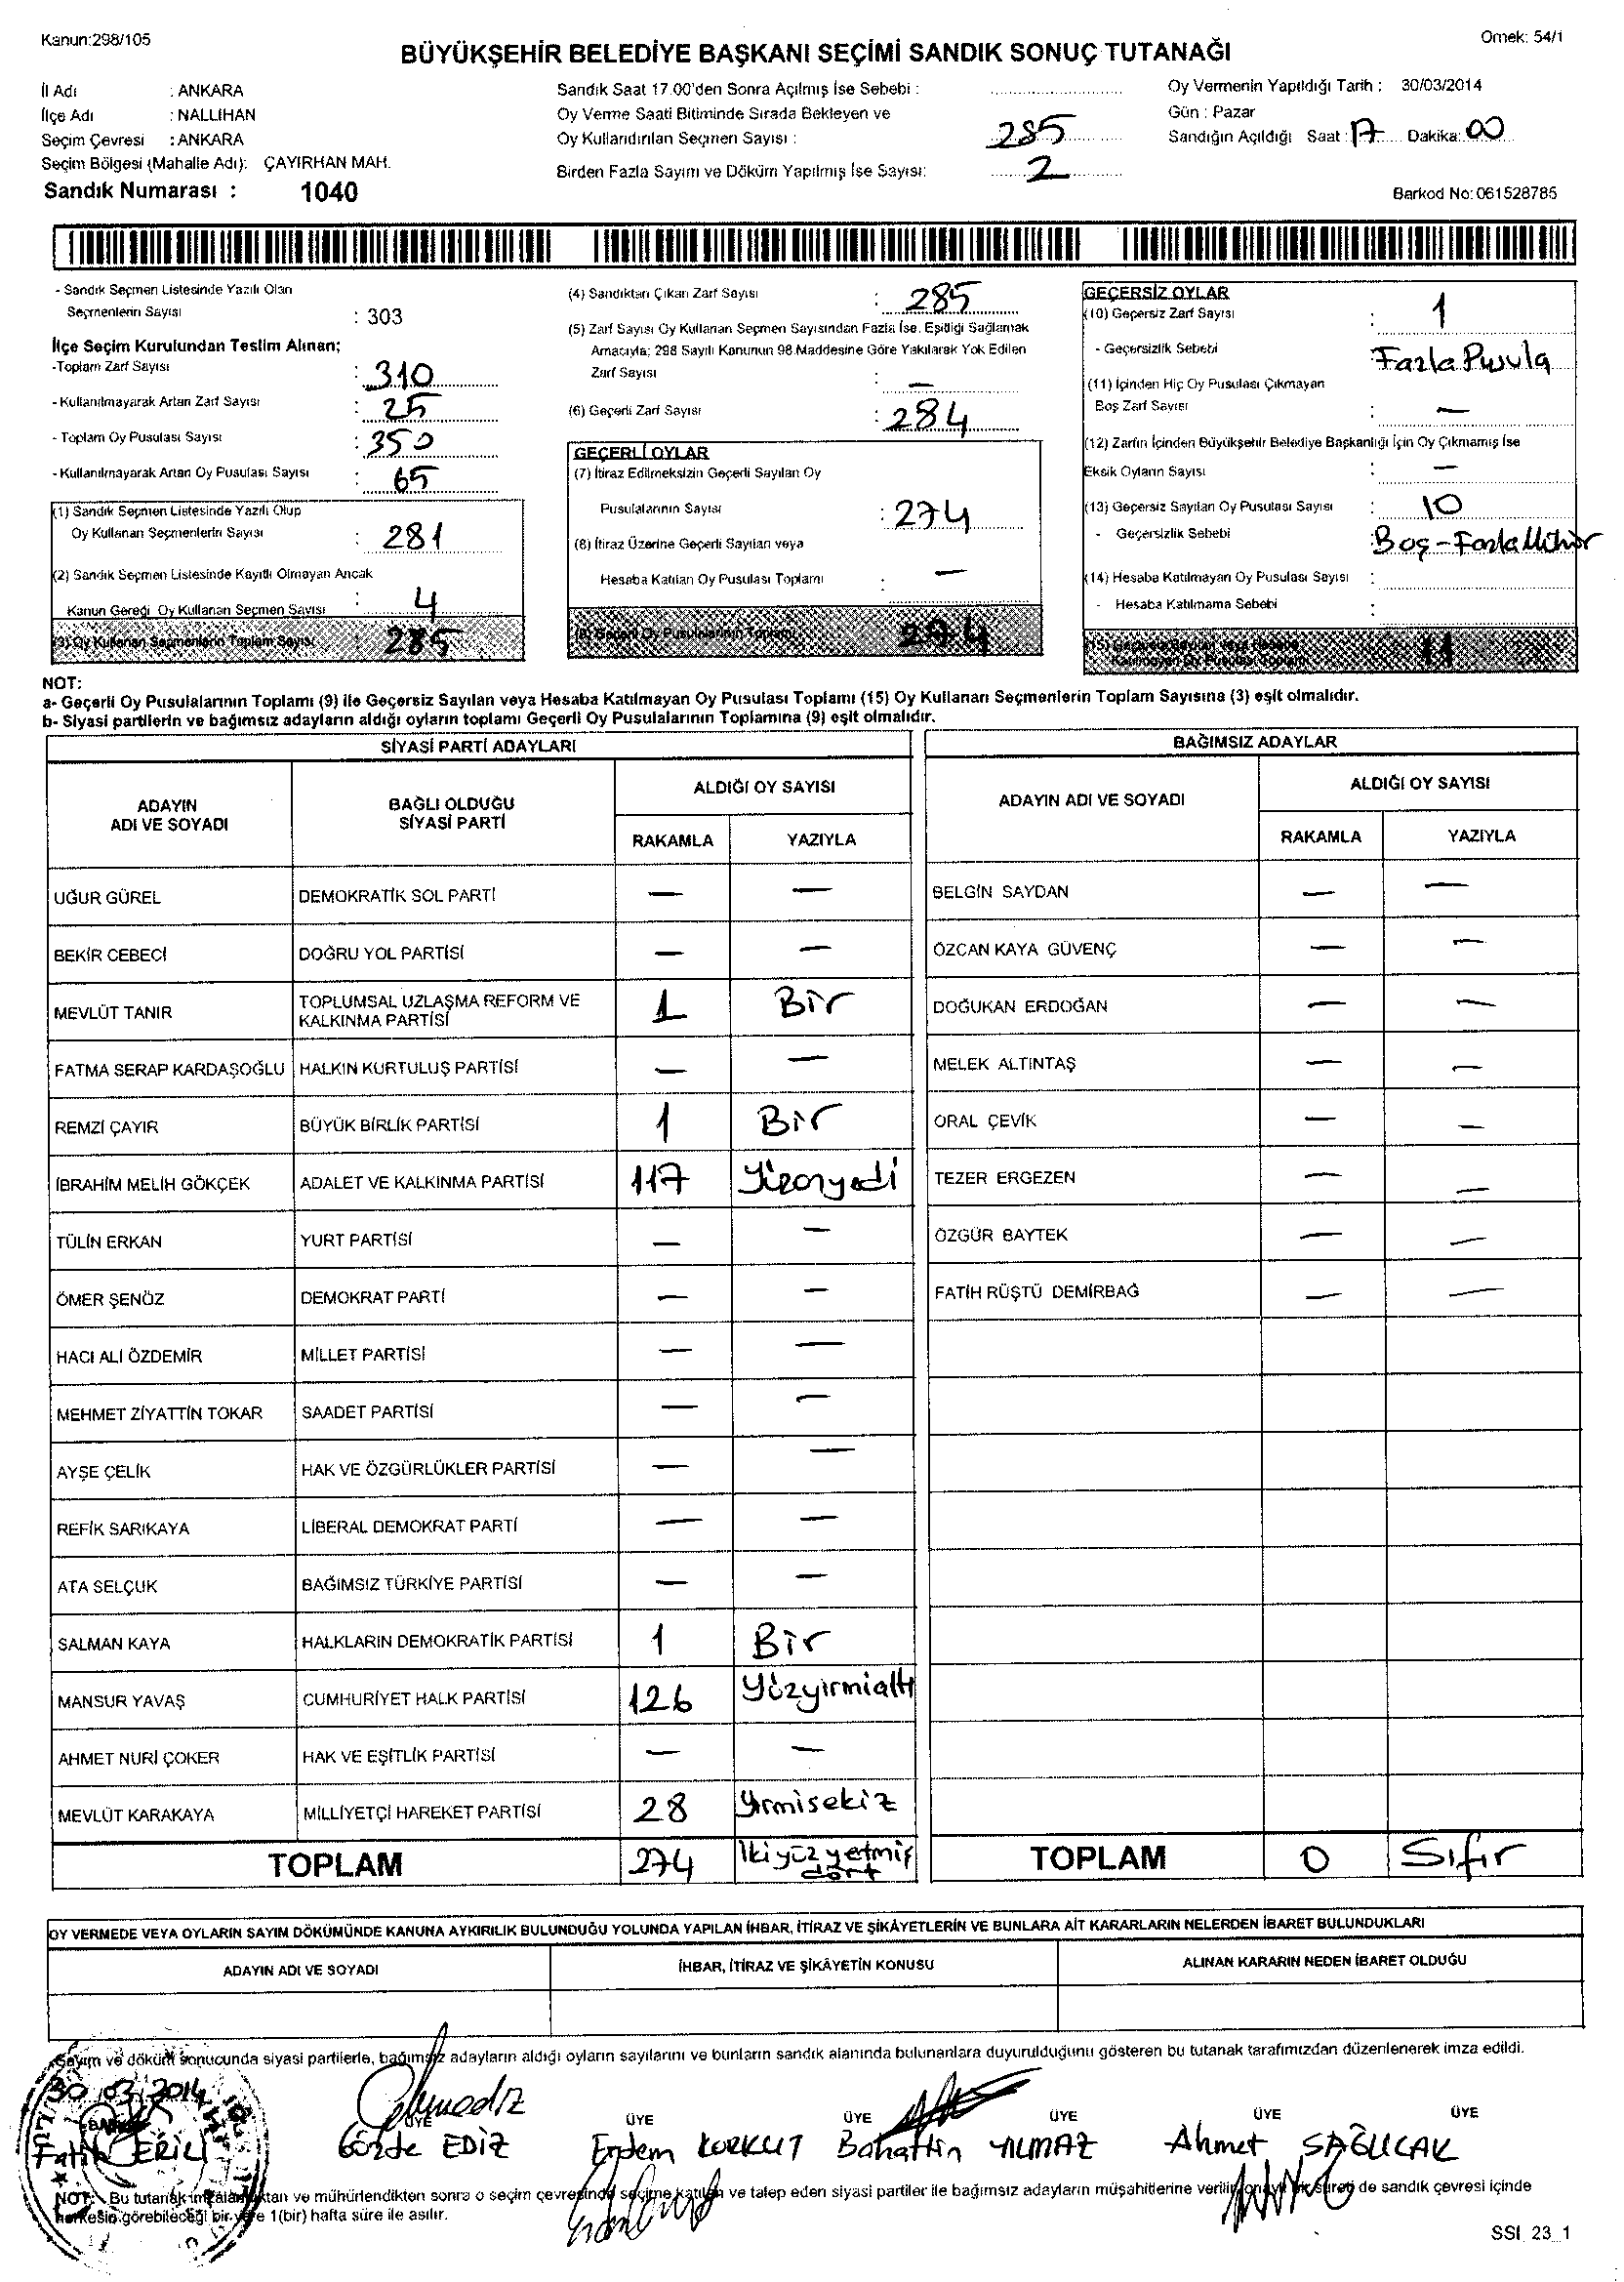 Kanun:298/105
Örnek: 54/1
BÜYÜKŞEHİR BELEDİYE BAŞKANI SEÇİMİ SANDIK SONUÇ TUTANAĞI
İl Adı : ANKARA
İlçe Adı : NALLIHAN
Seçim Çevresi : ANKARA
Seçim Bölgesi (Mahalle Adı): ÇAYIRHAN MAH.
Sandık Numarası : 1040
Sandık Saat 17.00'den Sonra Açılmış İse Sebebi :
Oy Verme Saati Bitiminde Sırada Bekleyen ve
Oy Kullandırılan Seçmen Sayısı : 285
Birden Fazla Sayım ve Döküm Yapılmış İse Sayısı: 2
Oy Vermenin Yapıldığı Tarih : 30/03/2014
Gün : Pazar
Sandığın Açıldığı Saat : 17 Dakika: 00
Barkod No: 061528785
- Sandık Seçmen Listesinde Yazılı Olan
Seçmenlerin Sayısı : 303
İlçe Seçim Kurulundan Teslim Alınan;
-Toplam Zarf Sayısı : 310
- Kullanılmayarak Artan Zarf Sayısı : 25
- Toplam Oy Pusulası Sayısı : 350
- Kullanılmayarak Artan Oy Pusulası Sayısı : 65
(1) Sandık Seçmen Listesinde Yazılı Olup
Oy Kullanan Seçmenlerin Sayısı : 281
(2) Sandık Seçmen Listesinde Kayıtlı Olmayan Ancak
Kanun Gereği Oy Kullanan Seçmen Sayısı : 4
(3) Oy Kullanan Seçmenlerin Toplam Sayısı : 285
(4) Sandıktan Çıkan Zarf Sayısı : 285
(5) Zarf Sayısı Oy Kullanan Seçmen Sayısından Fazla İse, Eşitliği Sağlamak
Amacıyla; 298 Sayılı Kanunun 98.Maddesine Göre Yakılarak Yok Edilen
Zarf Sayısı : —
(6) Geçerli Zarf Sayısı : 284
GEÇERLİ OYLAR
(7) İtiraz Edilmeksizin Geçerli Sayılan Oy
Pusulalarının Sayısı : 274
(8) İtiraz Üzerine Geçerli Sayılan veya
Hesaba Katılan Oy Pusulası Toplamı : —
(9) Geçerli Oy Pusulalarının Toplamı 274
GEÇERSİZ OYLAR
(10) Geçersiz Zarf Sayısı : 1
- Geçersizlik Sebebi Fazla Pusula
(11) İçinden Hiç Oy Pusulası Çıkmayan
Boş Zarf Sayısı : —
(12) Zarfın İçinden Büyükşehir Belediye Başkanlığı İçin Oy Çıkmamış İse
Eksik Oyların Sayısı : —
(13) Geçersiz Sayılan Oy Pusulası Sayısı : 10
- Geçersizlik Sebebi : Boş - Fazla Mühür
(14) Hesaba Katılmayan Oy Pusulası Sayısı :
- Hesaba Katılmama Sebebi :
(15) Geçersiz Sayılan veya Hesaba
Katılmayan Oy Pusulası Toplamı 11
NOT:
a- Geçerli Oy Pusulalarının Toplamı (9) ile Geçersiz Sayılan veya Hesaba Katılmayan Oy Pusulası Toplamı (15) Oy Kullanan Seçmenlerin Toplam Sayısına (3) eşit olmalıdır.
b- Siyasi partilerin ve bağımsız adayların aldığı oyların toplamı Geçerli Oy Pusulalarının Toplamına (9) eşit olmalıdır.
SİYASİ PARTİ ADAYLARI
ADAYIN ADI VE SOYADI BAĞLI OLDUĞU SİYASİ PARTİ ALDIĞI OY SAYISI
RAKAMLA YAZIYLA
UĞUR GÜREL DEMOKRATİK SOL PARTİ — —
BEKİR CEBECİ DOĞRU YOL PARTİSİ — —
MEVLÜT TANIR TOPLUMSAL UZLAŞMA REFORM VE KALKINMA PARTİSİ 1 Bir
FATMA SERAP KARDAŞOĞLU HALKIN KURTULUŞ PARTİSİ — —
REMZİ ÇAYIR BÜYÜK BİRLİK PARTİSİ 1 Bir
İBRAHİM MELİH GÖKÇEK ADALET VE KALKINMA PARTİSİ 117 Yüzonyedi
TÜLİN ERKAN YURT PARTİSİ — —
ÖMER ŞENÖZ DEMOKRAT PARTİ — —
HACI ALİ ÖZDEMİR MİLLET PARTİSİ — —
MEHMET ZİYATTİN TOKAR SAADET PARTİSİ — —
AYŞE ÇELİK HAK VE ÖZGÜRLÜKLER PARTİSİ — —
REFİK SARIKAYA LİBERAL DEMOKRAT PARTİ — —
ATA SELÇUK BAĞIMSIZ TÜRKİYE PARTİSİ — —
SALMAN KAYA HALKLARIN DEMOKRATİK PARTİSİ 1 Bir
MANSUR YAVAŞ CUMHURİYET HALK PARTİSİ 126 Yüzyirmialtı
AHMET NURİ ÇOKER HAK VE EŞİTLİK PARTİSİ — —
MEVLÜT KARAKAYA MİLLİYETÇİ HAREKET PARTİSİ 28 Yirmisekiz
TOPLAM 274 İkiyüzyetmiş dört
BAĞIMSIZ ADAYLAR
ADAYIN ADI VE SOYADI ALDIĞI OY SAYISI
RAKAMLA YAZIYLA
BELGİN SAYDAN — —
ÖZCAN KAYA GÜVENÇ — —
DOĞUKAN ERDOĞAN — —
MELEK ALTINTAŞ — —
ORAL ÇEVİK — —
TEZER ERGEZEN — —
ÖZGÜR BAYTEK — —
FATİH RÜŞTÜ DEMİRBAĞ — —
TOPLAM 0 Sıfır
OY VERMEDE VEYA OYLARIN SAYIM DÖKÜMÜNDE KANUNA AYKIRILIK BULUNDUĞU YOLUNDA YAPILAN İHBAR, İTİRAZ VE ŞİKÂYETLERİN VE BUNLARA AİT KARARLARIN NELERDEN İBARET BULUNDUKLARI
ADAYIN ADI VE SOYADI İHBAR, İTİRAZ VE ŞİKÂYETİN KONUSU ALINAN KARARIN NEDEN İBARET OLDUĞU
Sayım ve döküm sonucunda siyasi partilerle, bağımsız adayların aldığı oyların sayılarını ve bunların sandık alanında bulunanlara duyurulduğunu gösteren bu tutanak tarafımızdan düzenlenerek imza edildi.
30.03.2014
ÜYE ÜYE ÜYE ÜYE ÜYE ÜYE
Fatih Gözde EDİZ Erdem KORKUT Bahattin YILMAZ Ahmet SAĞLICAK
NOT: Bu tutanak imzalandıktan ve mühürlendikten sonra o seçim çevresinde seçime katılan ve talep eden siyasi partiler ile bağımsız adayların müşahitlerine verilir, onaylı bir sureti de sandık çevresi içinde
herkesin görebileceği bir yere 1(bir) hafta süre ile asılır.
SSI_23_1